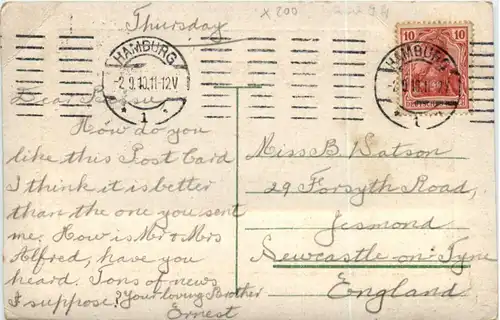 Thursday
x 200
HAMBURG
-2.9.10.11-12V
* 1 *
10 10
HAMBURG
* 1 *
Dear
How do you
like this Post Card
I think it is better
than the one you sent
me. How is Mr & Mrs
Alfred, have you
heard. Tons of news
I suppose? Your loving Brother
Ernest
Miss B. Watson
29 Forsyth Road,
Jesmond
Newcastle-on-Tyne
England